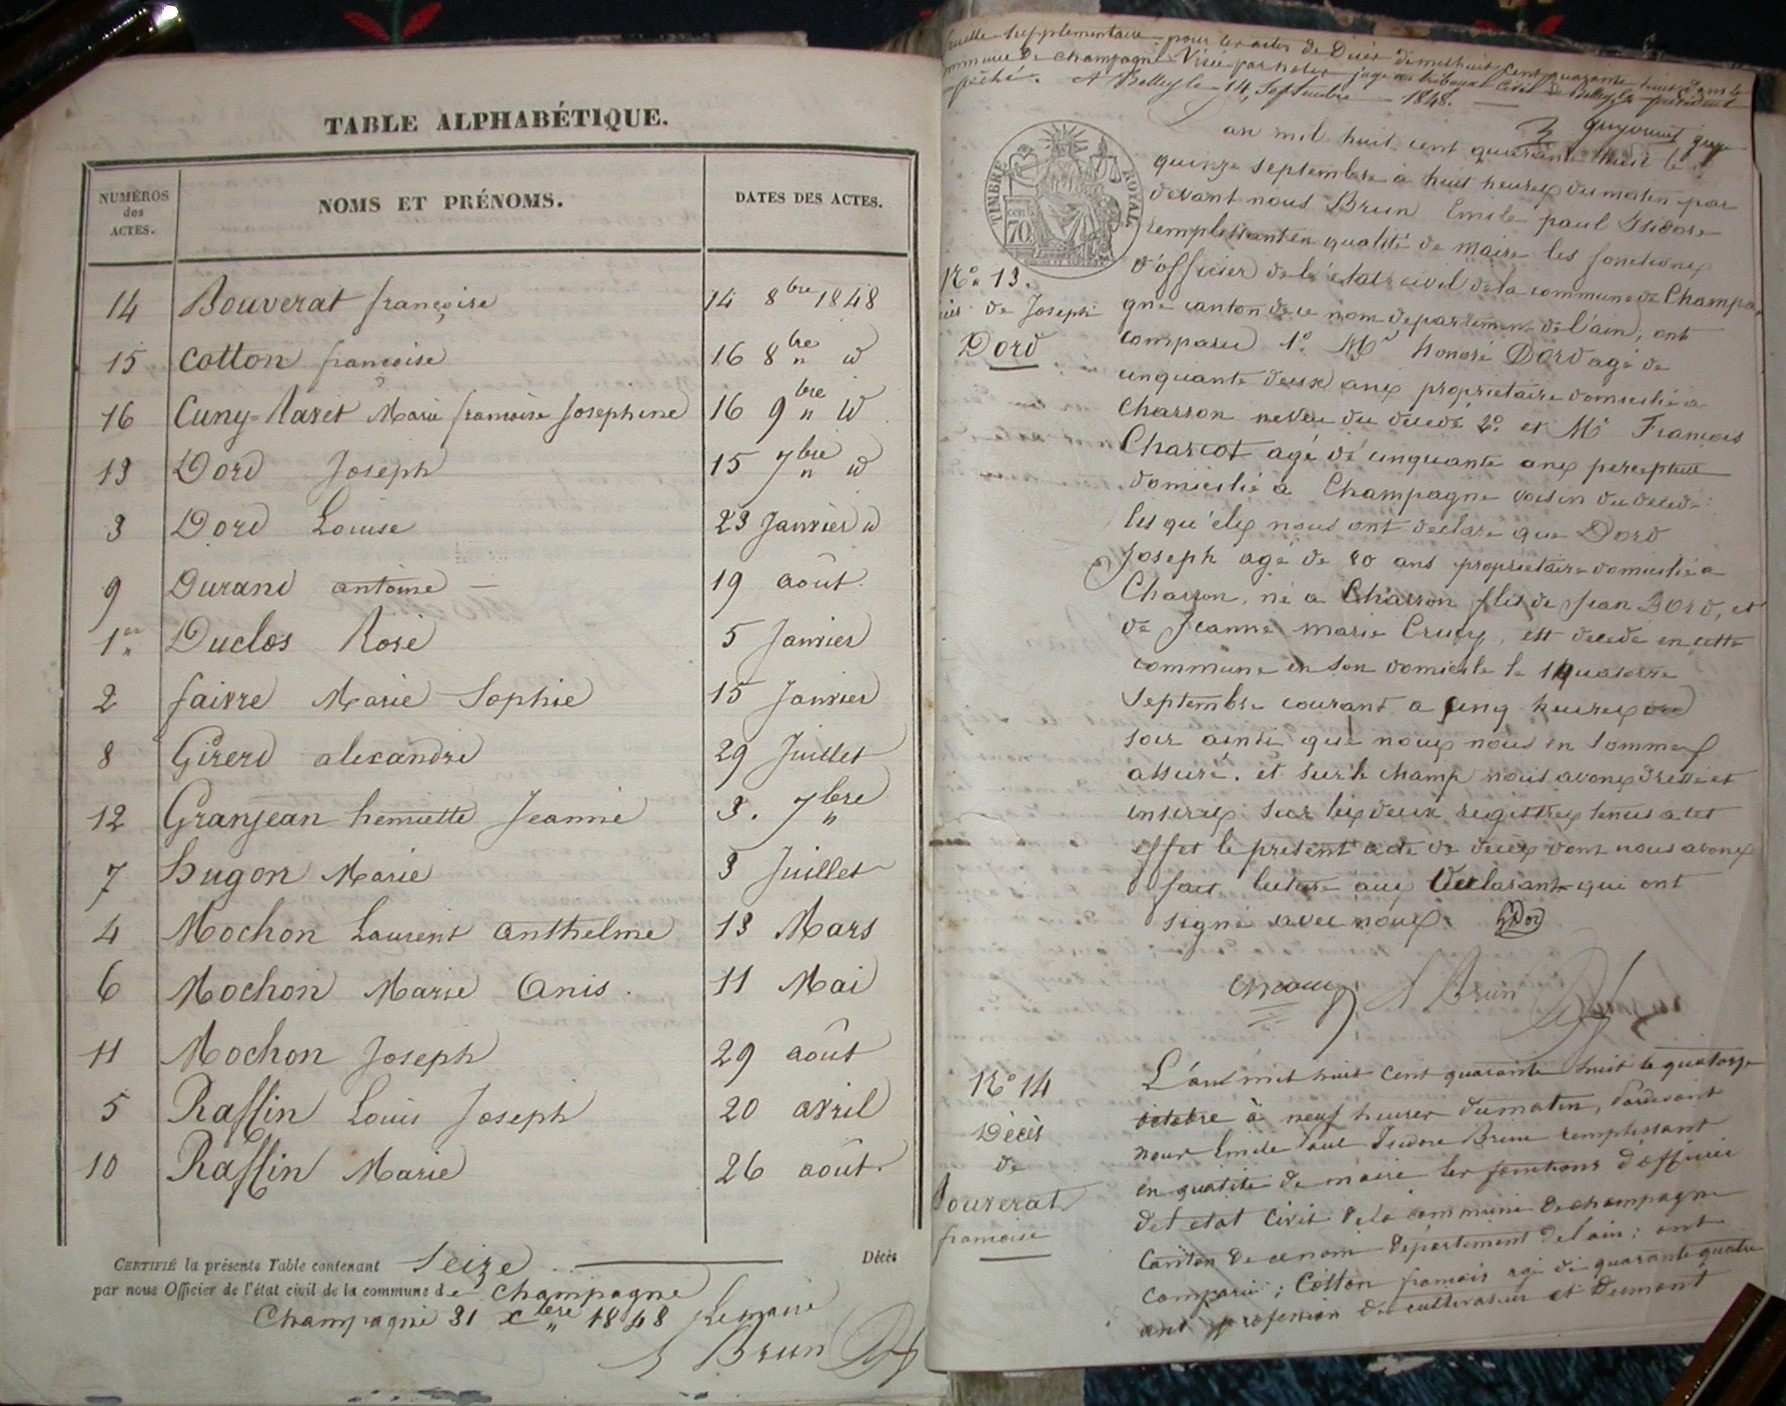 TABLE ALPHABÉTIQUE.
NUMÉROS des ACTES. NOMS ET PRÉNOMS. DATES DES ACTES.
14 Bouverat françoise 14 8bre 1848
15 Cotton françoise 16 8bre " id
16 Cuny-Ravet Marie françoise Josephine 16 9bre " id
13 Dord Joseph 15 7bre " id
3 Dord Louise 23 Janvier id
9 Durand antoine — 19 août.
1er Duclos Rose 5 Janvier
2 faivre Marie Sophie 15 Janvier
8 Girerd alexandre 29 Juillet
12 Granjean henriette Jeanne 3. 7bre "
7 hugon Marie 3 Juillet
4 Mochon Laurent anthelme 13 Mars
6 Mochon Marie Anis. 11 Mai
11 Mochon Joseph 29 août
5 Rafflin Louis Joseph 20 avril
10 Rafflin Marie 26 août.
CERTIFIÉ la présente Table contenant Seize Décès
par nous Officier de l'état civil de la commune de Champagne
Champagne 31 xbre " 1848 Le maire
Brun
feuille supplémentaire pour les actes de Décès de mil huit cent quarante huit dans la
commune de Champagne Visée par nous juge au tribunal Civil de Belley le président
empêché. A Belley le 14 Septembre 1848.
TIMBRE ROYAL
70
an mil huit cent quarante huit le
quinze septembre à huit heures du matin par
devant nous Brun Emile paul Isidore
remplissant en qualité de maire les fonctions
d'officier de l'état civil de la commune de Champa
gne canton de ce nom departement de l'ain, ont
comparu 1o. Mr honoré Dord agé de
cinquante deux ans propriétaire domicilié a
Charron neveu du décédé 2o. et Mr François
Charcot agé de cinquante ans percepteur
domicilié à Champagne voisin du decede
les qu'els nous ont declaré que Dord
Joseph agé de 80 ans propriétaire domicilié a
Charron, né a Charron fils de Jean Dord, et
de Jeanne marie Cruzy, est decede en cette
commune en son domicile le quatorze
Septembre courant a cinq heures du
soir ainsi que nous nous en sommes
assuré. et sur le champ nous avons dressé et
inscrit sur les deux registres tenus a cet
effet le présent acte de deces dont nous avons
fait lecture aux declarant qui ont
signé avec nous. hDord
No. 13.
de Joseph
Dord
Brun
No 14
Décès
de
Bouverat
françoise
L'an mil huit cent quarante huit le quatorze
octobre à neuf heures du matin, Pardevant
nous Emile Paul Isidore Brun remplissant
en qualité de maire les fonctions d'officier
de l'etat civil de la commune de champagne
Canton de ce nom département de l'ain; ont
comparu; Cotton francois agé de quarante quatre
ans profession de cultivateur et Dumont